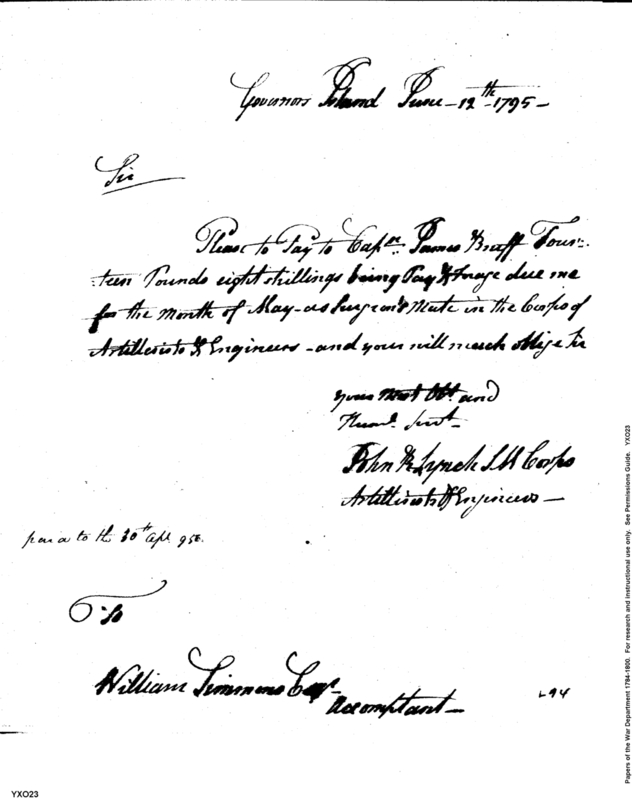 Governors Island June - 12th - 1795 -
Sir
Please to Pay to Capn. James Bruff Four-
teen Pounds eight shillings being Pay & Forage due me
for the Month of May - as Surgeons Mate in the Corps of
Artillerists & Engineers - and your will much oblige Sir
your Most Obt. and
Humb. Servt.
John R Lynch S M Corps
Artillerists & Engineers -
paid to the 30th Apl. 95.
To
William Simmons Esqr.
Accomptant -
94
YXO23
Papers of the War Department 1784-1800. For research and instructional use only. See Permissions Guide. YXO23